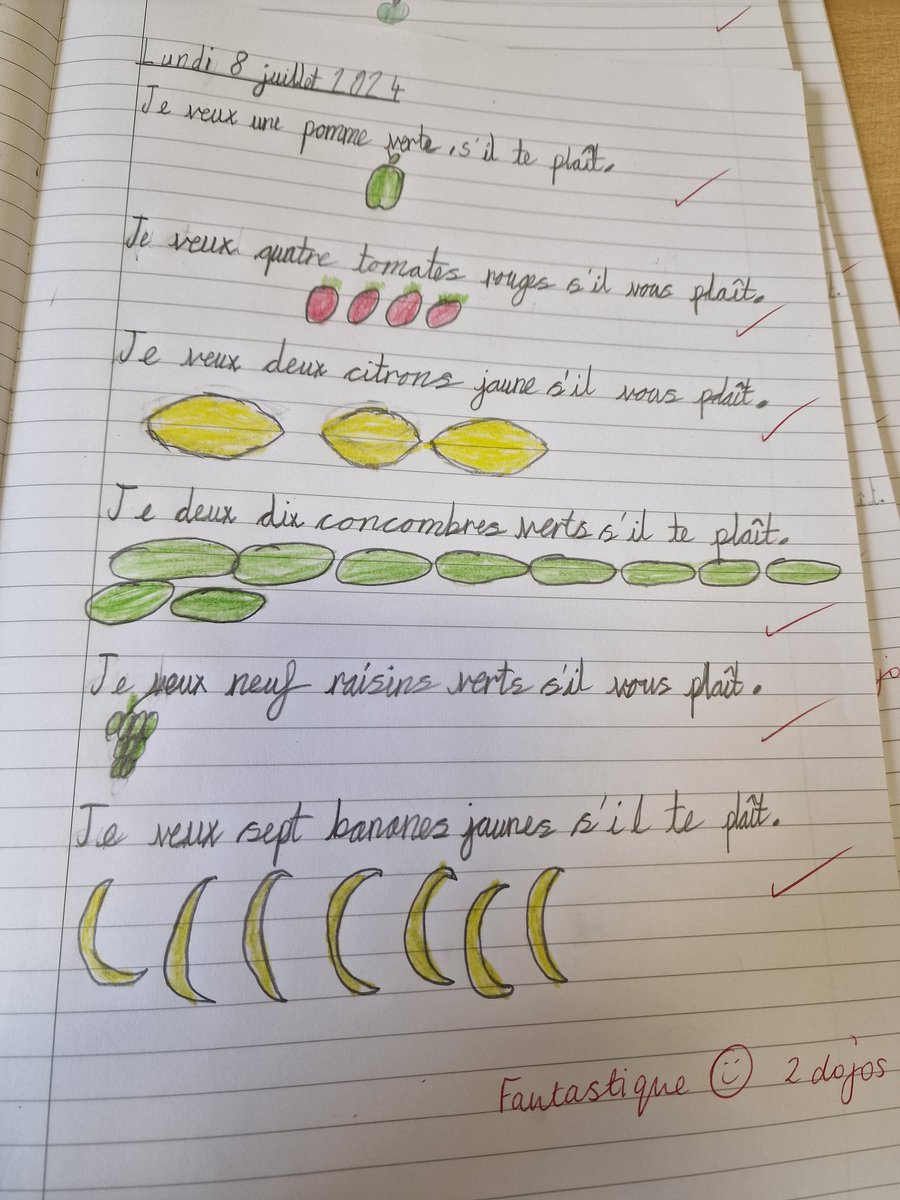 Lundi 8 juillet 2024
Je veux une pomme verte, s'il te plaît.
Je veux quatre tomates rouges s'il vous plaît.
Je veux deux citrons jaune s'il vous plaît.
Je deux dix concombres verts s'il te plaît.
Je veux neuf raisins verts s'il vous plaît.
Je veux sept bananes jaunes s'il te plaît.
Fantastique 2 dojos